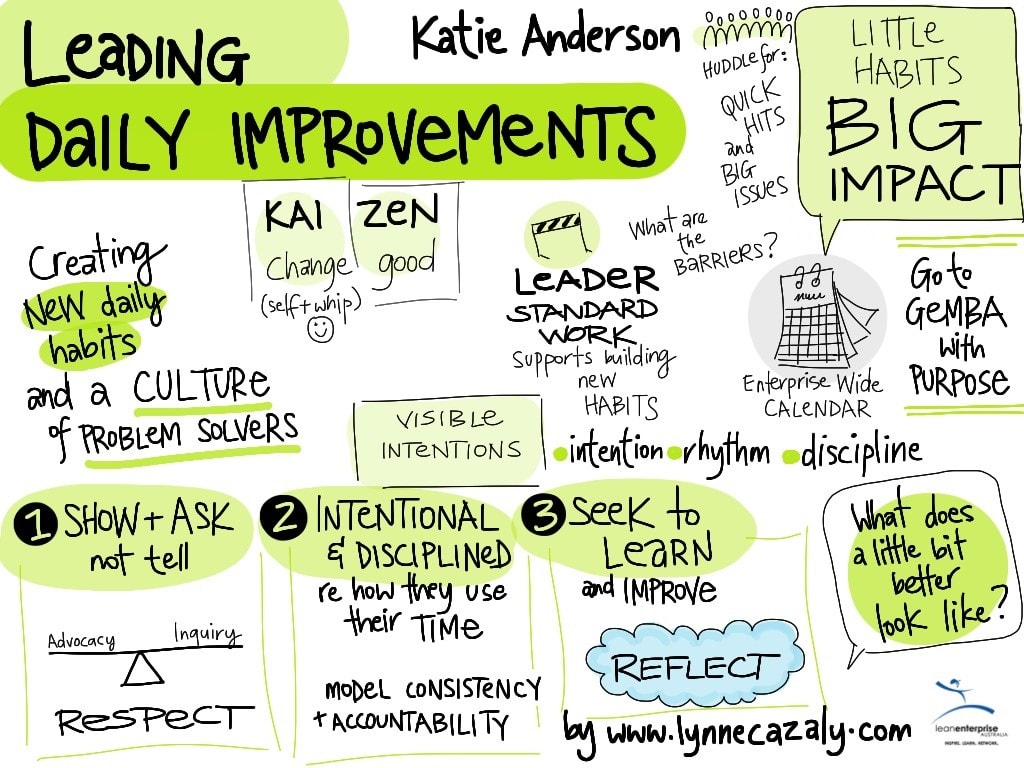 LEADING
DAILY IMPROVEMENTS
Katie Anderson
HUDDLE for:
QUICK
HITS
and
BIG
ISSUES
LITTLE
HABITS
BIG
IMPACT
KAI
Change
(self + whip)
ZEN
good
Creating
NEW daily
habits
and a CULTURE
of PROBLEM SOLVERS
LEADER
STANDARD
WORK
Supports building
new
HABITS
What are
the
BARRIERS?
ENTERPRISE WIDE
CALENDAR
Go to
GEMBA
with
PURPOSE
VISIBLE
INTENTIONS
•intention •rhythm •discipline
1 SHOW + ASK
not tell
Advocacy Inquiry
RESPECT
2 INTENTIONAL
& DISCIPLINED
re how they use
their TIME
MODEL CONSISTENCY
+ ACCOUNTABILITY
3 SEEK to
LEARN
and IMPROVE
REFLECT
What does
a little bit
better
look like?
by www.lynnecazaly.com
leanenterprise
AUSTRALIA
INSPIRE. LEARN. NETWORK.